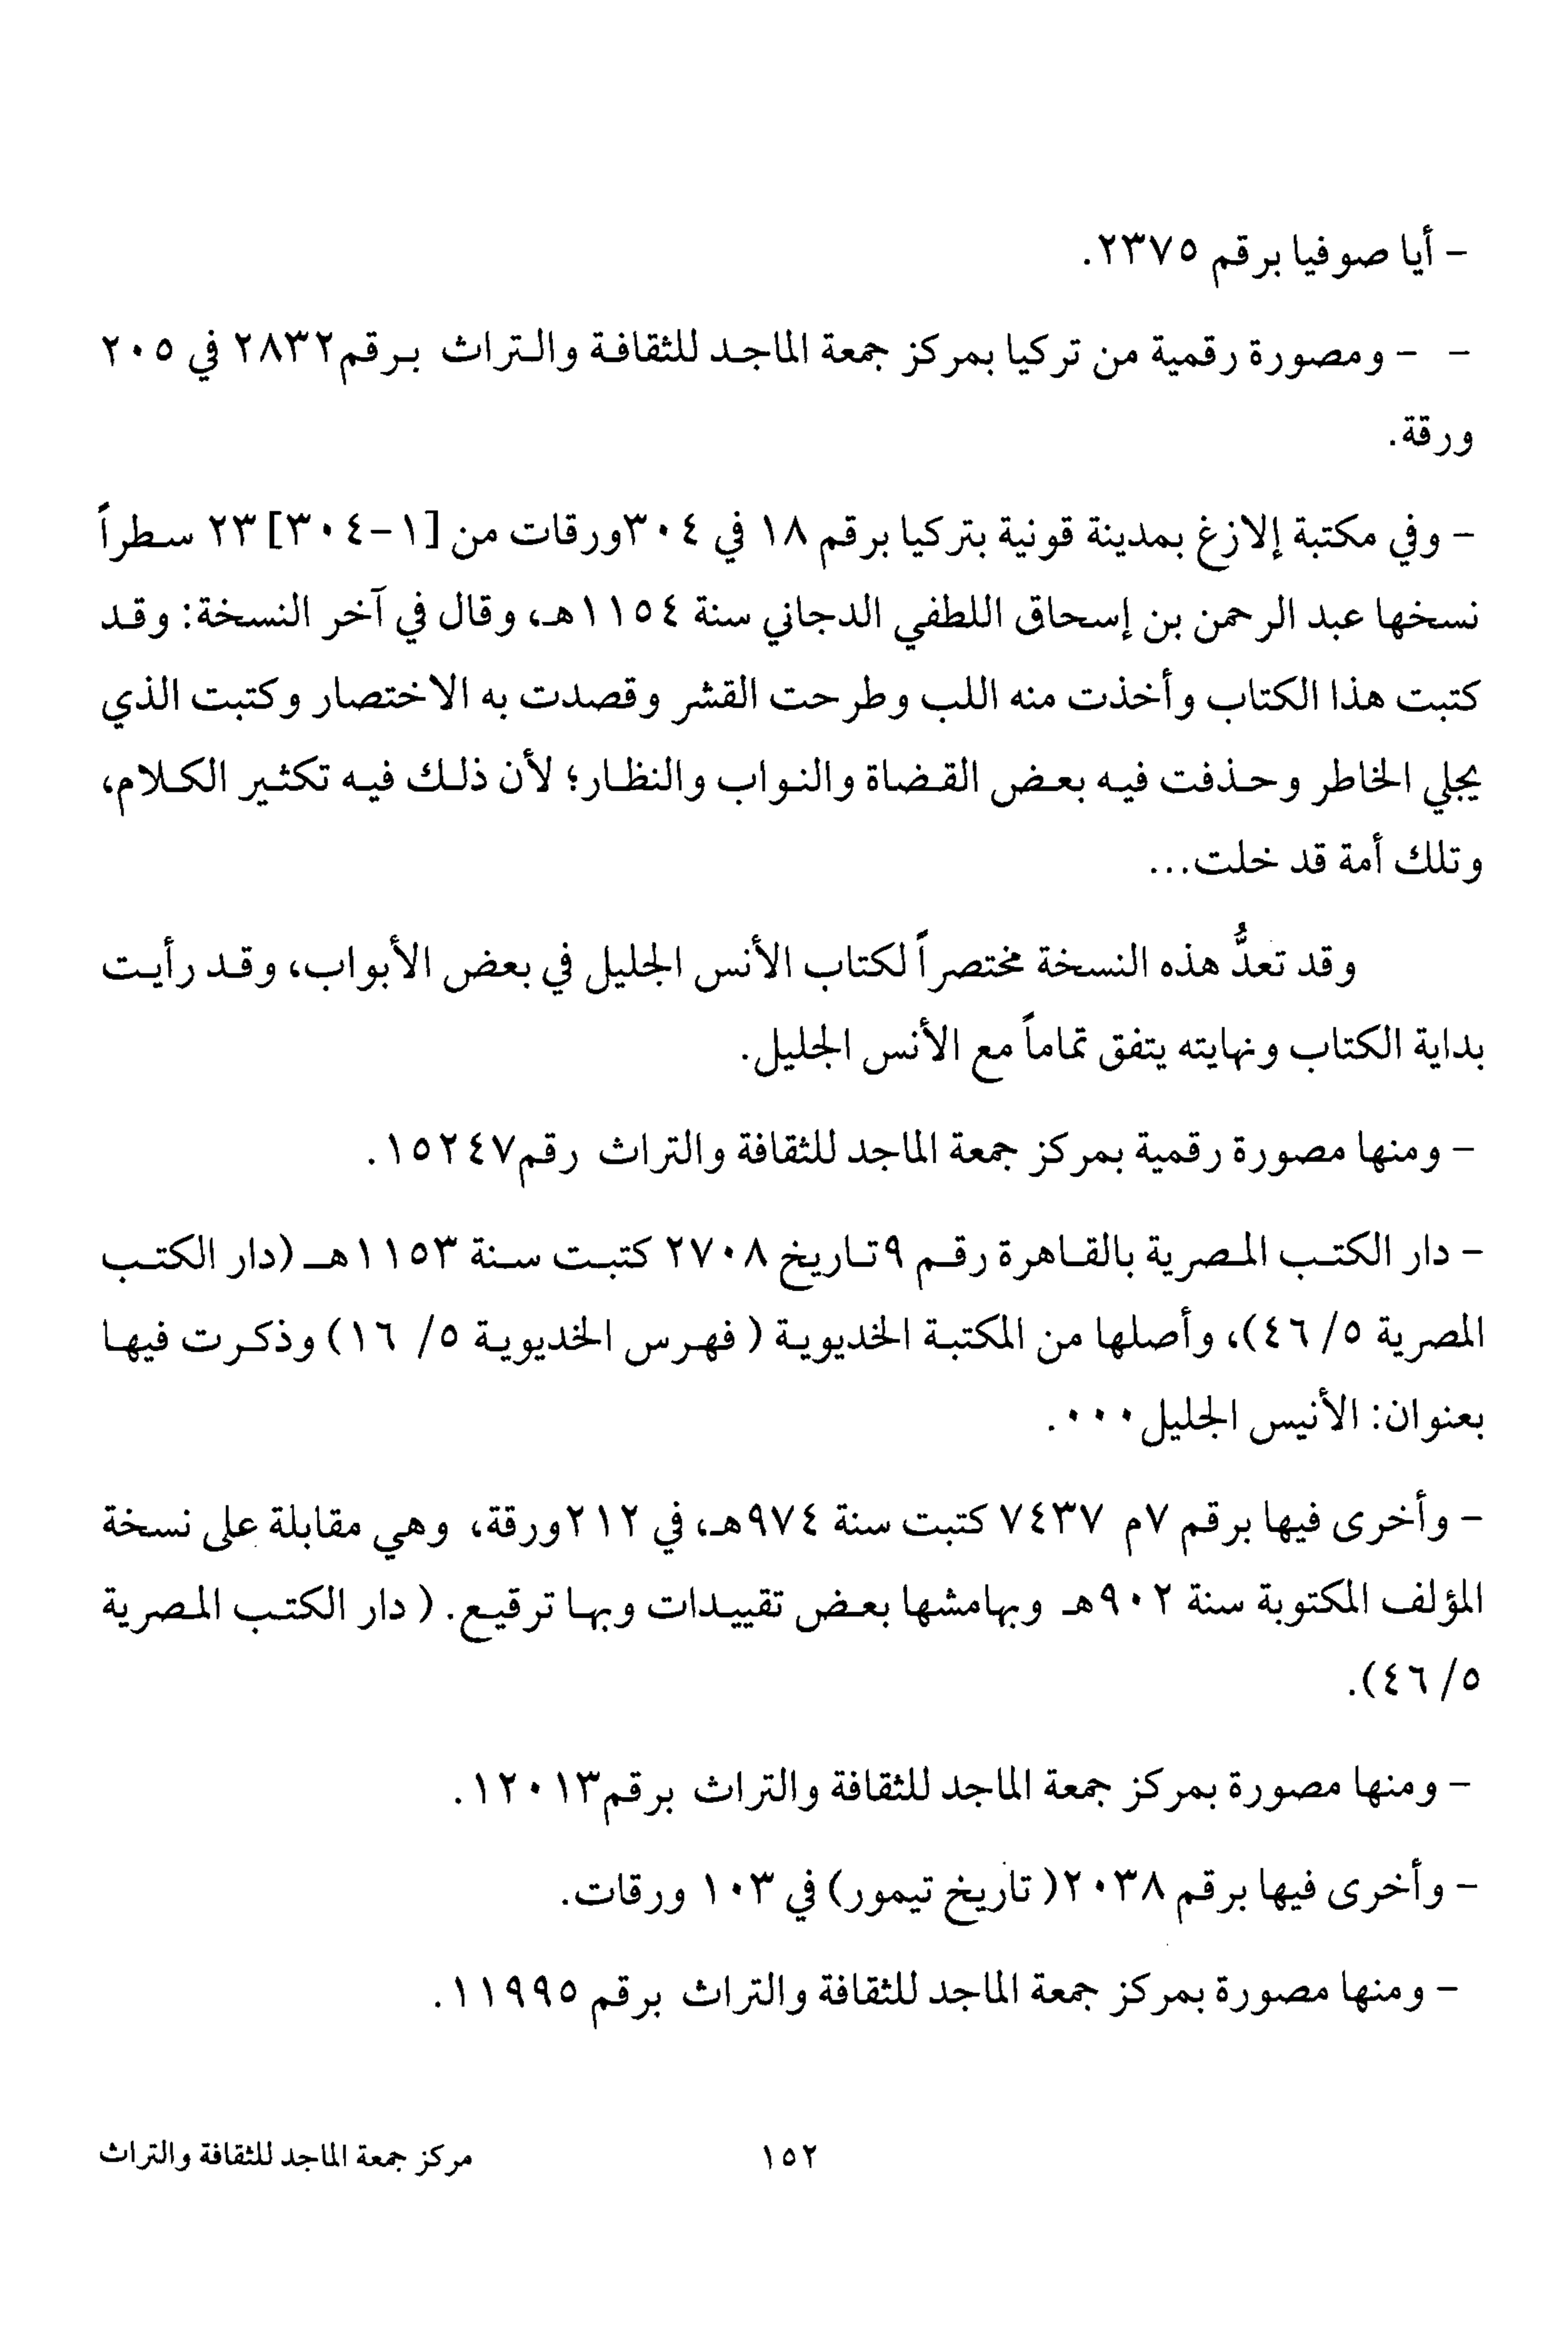 - أيا صوفيا برقم ٢٣٧٥.
- - ومصورة رقمية من تركيا بمركز جمعة الماجد للثقافة والتراث برقم٢٨٣٢ في ٢٠٥
ورقة.
- وفي مكتبة إلازغ بمدينة قونية بتركيا برقم ١٨ في ٣٠٤ورقات من [١-٣٠٤] ٢٣ سطراً
نسخها عبد الرحمن بن إسحاق اللطفي الدجاني سنة ١١٥٤هـ، وقال في آخر النسخة: وقد
كتبت هذا الكتاب وأخذت منه اللب وطرحت القشر وقصدت به الاختصار وكتبت الذي
يجلي الخاطر وحذفت فيه بعض القضاة والنواب والنظار؛ لأن ذلك فيه تكثير الكلام،
وتلك أمة قد خلت...
وقد تعدُّ هذه النسخة مختصراً لكتاب الأنس الجليل في بعض الأبواب، وقد رأيت
بداية الكتاب ونهايته يتفق تماماً مع الأنس الجليل.
- ومنها مصورة رقمية بمركز جمعة الماجد للثقافة والتراث رقم١٥٢٤٧.
- دار الكتب المصرية بالقاهرة رقم ٩تاريخ ٢٧٠٨ كتبت سنة ١١٥٣هـ (دار الكتب
المصرية ٥/ ٤٦)، وأصلها من المكتبة الخديوية ( فهرس الخديوية ٥/ ١٦) وذكرت فيها
بعنوان: الأنيس الجليل٠٠٠.
- وأخرى فيها برقم ٧م ٧٤٣٧ كتبت سنة ٩٧٤هـ، في ٢١٢ورقة، وهي مقابلة على نسخة
المؤلف المكتوبة سنة ٩٠٢هـ وبهامشها بعض تقييدات وبها ترقيع. ( دار الكتب المصرية
٥/ ٤٦).
- ومنها مصورة بمركز جمعة الماجد للثقافة والتراث برقم١٢٠١٣.
- وأخرى فيها برقم ٢٠٣٨( تاريخ تيمور) في ١٠٣ ورقات.
- ومنها مصورة بمركز جمعة الماجد للثقافة والتراث برقم ١١٩٩٥.
١٥٢
مركز جمعة الماجد للثقافة والتراث